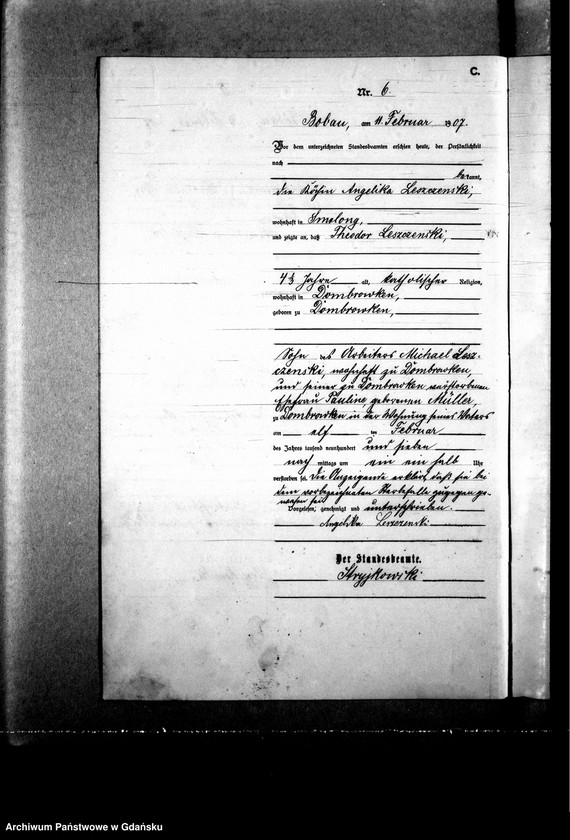 C.
Nr. 6.
Bobau, am 11. Februar 1907.
Vor dem unterzeichneten Standesbeamten erschien heute, der Persönlichkeit
nach
kannt,
die Köchin Angelika Leszczenski,
wohnhaft in Smolong,
und zeigte an, daß Theodor Leszczenski,
43 Jahre alt, katholischer Religion,
wohnhaft in Dombrowken,
geboren zu Dombrowken,
Sohn des Arbeiters Michael Lesz-
czenski, wohnhaft zu Dombrowken,
und seiner zu Dombrowken verstorbenen
Ehefrau Pauline, geborenen Müller,
zu Dombrowken in der Wohnung seines Vaters
am elf ten Februar
des Jahres tausend neunhundert und sieben
nach mittags um ein ein halb Uhr
verstorben sei. Die Anzeigende erklärt, daß sie bei
dem vorbezeichneten Sterbefalle zugegen ge-
wesen sei.
Vorgelesen, genehmigt und unterschrieben.
Angelika Leszczenski
Der Standesbeamte.
Stryjkowski
Archiwum Państwowe w Gdańsku